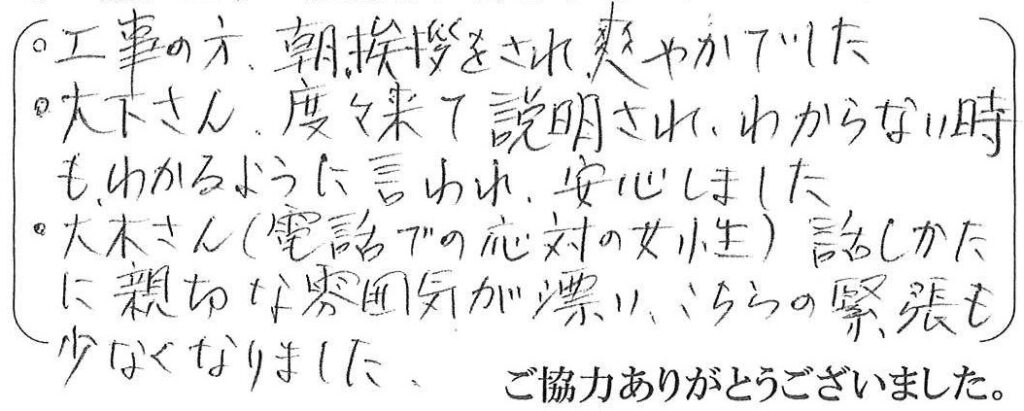 。工事の方、朝、挨拶をされ、爽やかでした
。大下さん、度々来て説明され、わからない時
も、わかるように言われ、安心しました
・大木さん(電話での応対の女性)話しかた
に親切な雰囲気が漂い、こちらの緊張も
少なくなりました、
ご協力ありがとうございました。